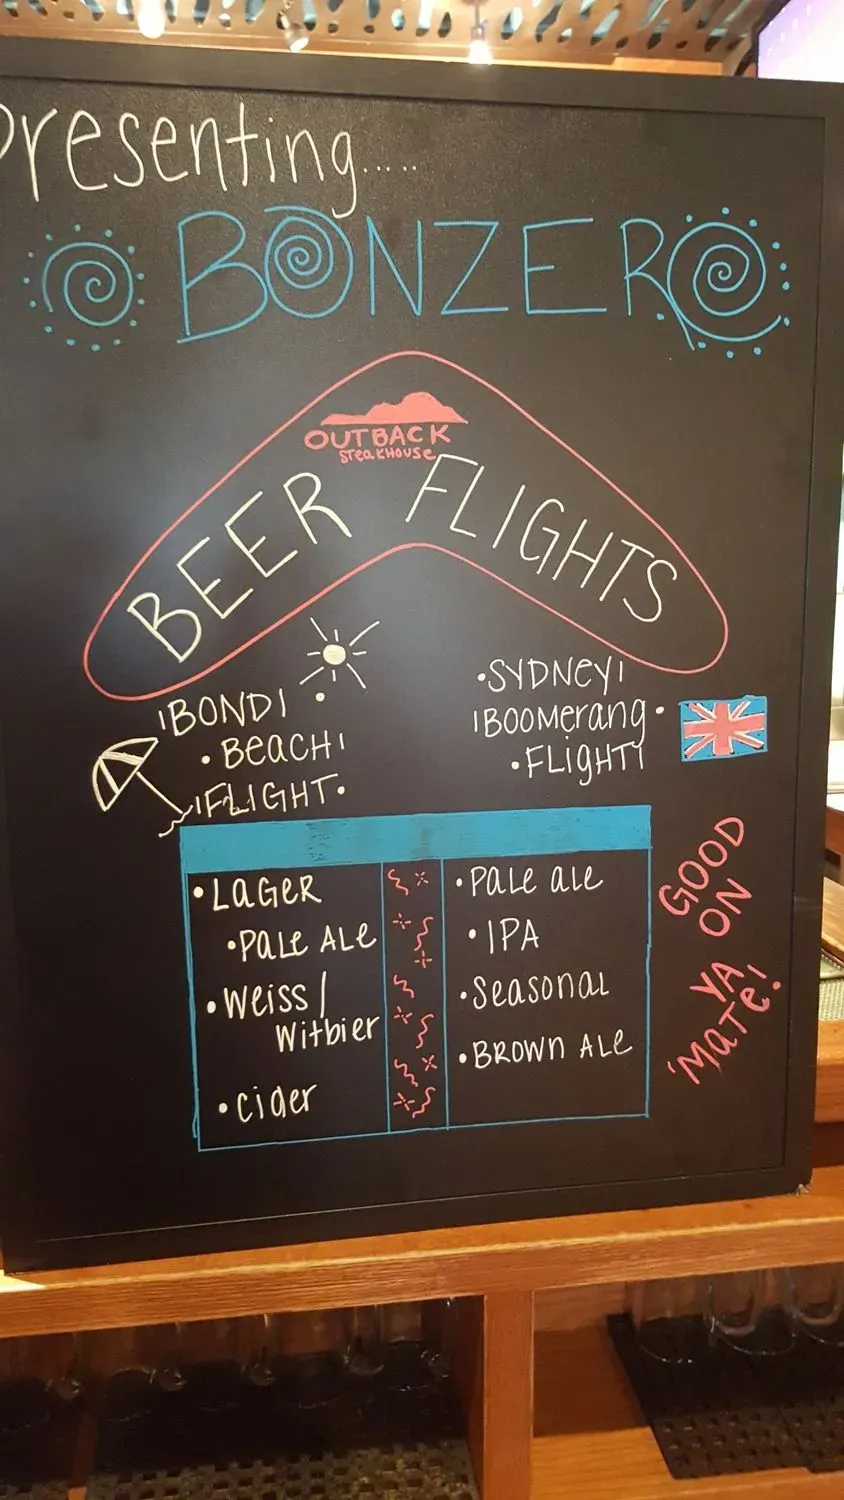 Presenting.....
BONZER
OUTBACK
STEAKHOUSE
BEER FLIGHTS
BONDI
BEACH
FLIGHT
SYDNEY
BOOMERANG
FLIGHT
• LAGER
• PALE ALE
• WEISS /
WITBIER
• CIDER
• PALE ALE
• IPA
• SEASONAL
• BROWN ALE
GOOD
ON
YA
'MATE!